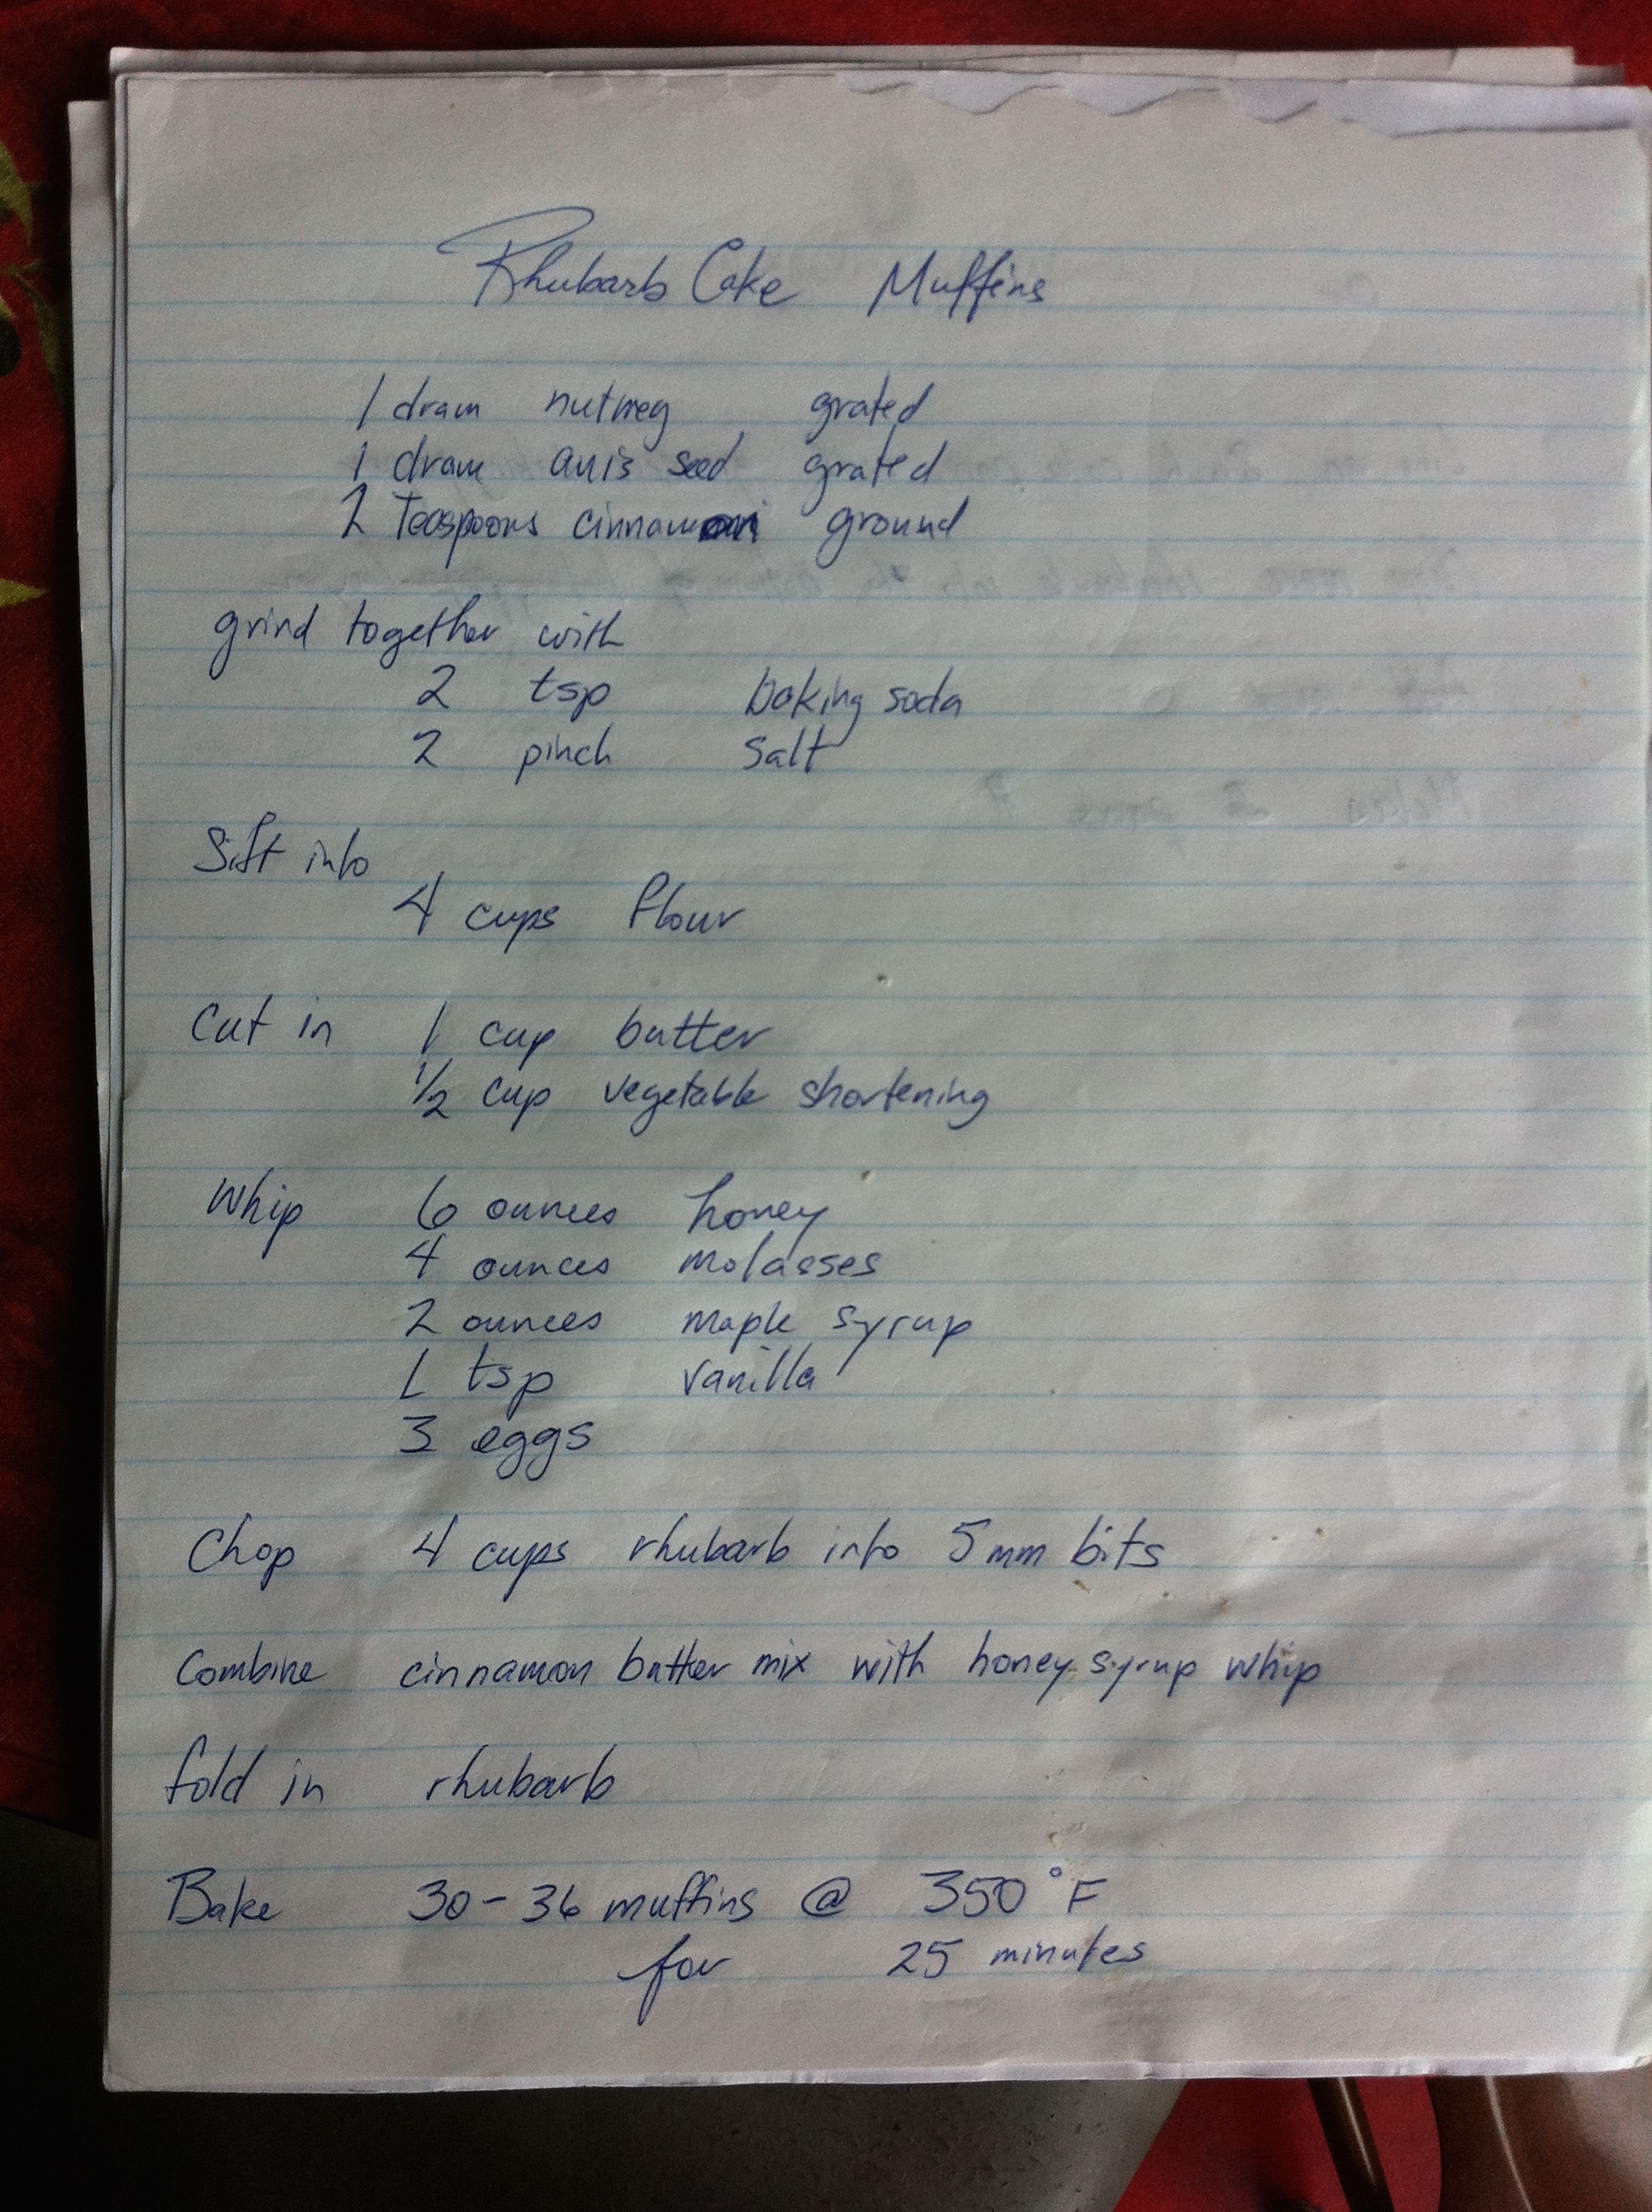 Rhubarb Cake Muffins
1 dram nutmeg grated
1 dram anis seed grated
2 Teaspoons cinnamon ground
grind together with
2 tsp baking soda
2 pinch salt
Sift into
4 cups flour
Cut in 1 cup butter
1/2 cup vegetable shortening
Whip 6 ounces honey
4 ounces molasses
2 ounces maple syrup
1 tsp vanilla
3 eggs
Chop 4 cups rhubarb into 5mm bits
Combine cinnamon butter mix with honey syrup whip
fold in rhubarb
Bake 30-36 muffins @ 350°F
for 25 minutes